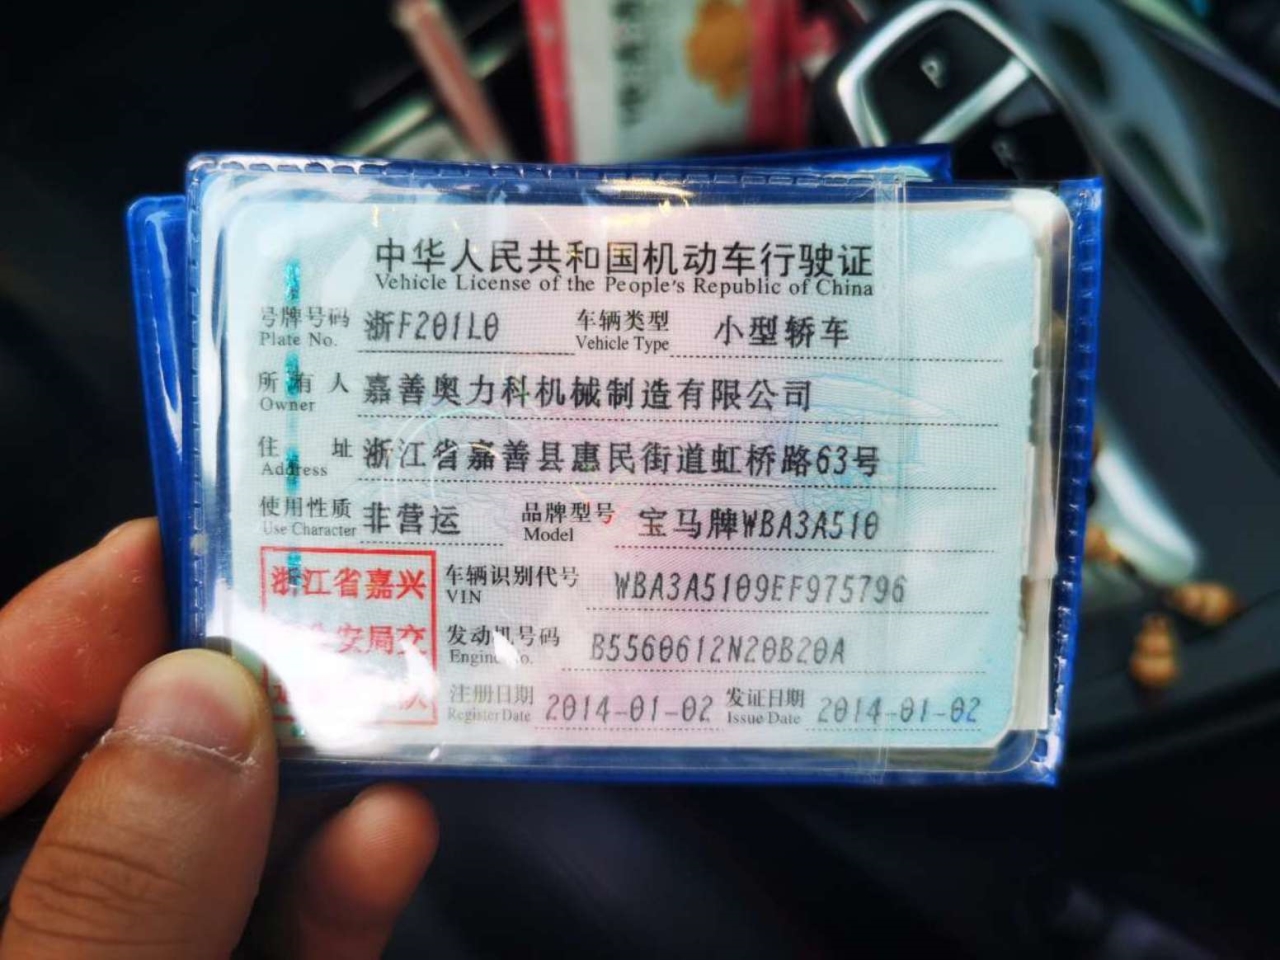 中华人民共和国机动车行驶证
Vehicle License of the People's Republic of China
号牌号码 浙F201L0 车辆类型 小型轿车
Plate No. Vehicle Type
所有人 嘉善奥力科机械制造有限公司
Owner
住址 浙江省嘉善县惠民街道虹桥路63号
Address
使用性质 非营运 品牌型号 宝马牌WBA3A510
Use Character Model
浙江省嘉兴 车辆识别代号 WBA3A5109EF975796
VIN
安局交 发动机号码 B5560612N20B20A
Engine No.
注册日期 2014-01-02 发证日期 2014-01-02
Register Date Issue Date